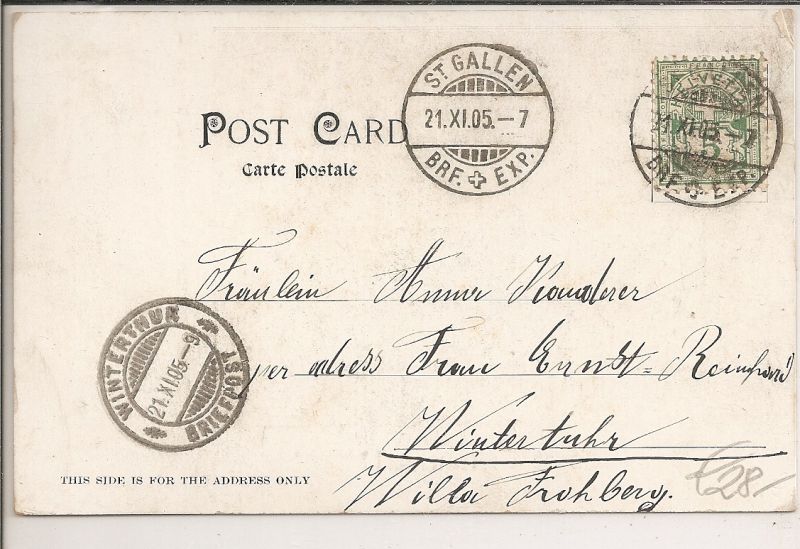 ST GALLEN
21.XI.05.–7
BRF. EXP.
HELVETIA
5
21.XI.05.–7
BRF. EXP.
POST CARD
Carte Postale
Fräulein Anna Kanderer
per adress Frau Ernst=Reinhard
Wintertuhr
Willa Frohberg.
WINTERTHUR
21.XI.05.–9
BRIEFPOST
THIS SIDE IS FOR THE ADDRESS ONLY
€28.–